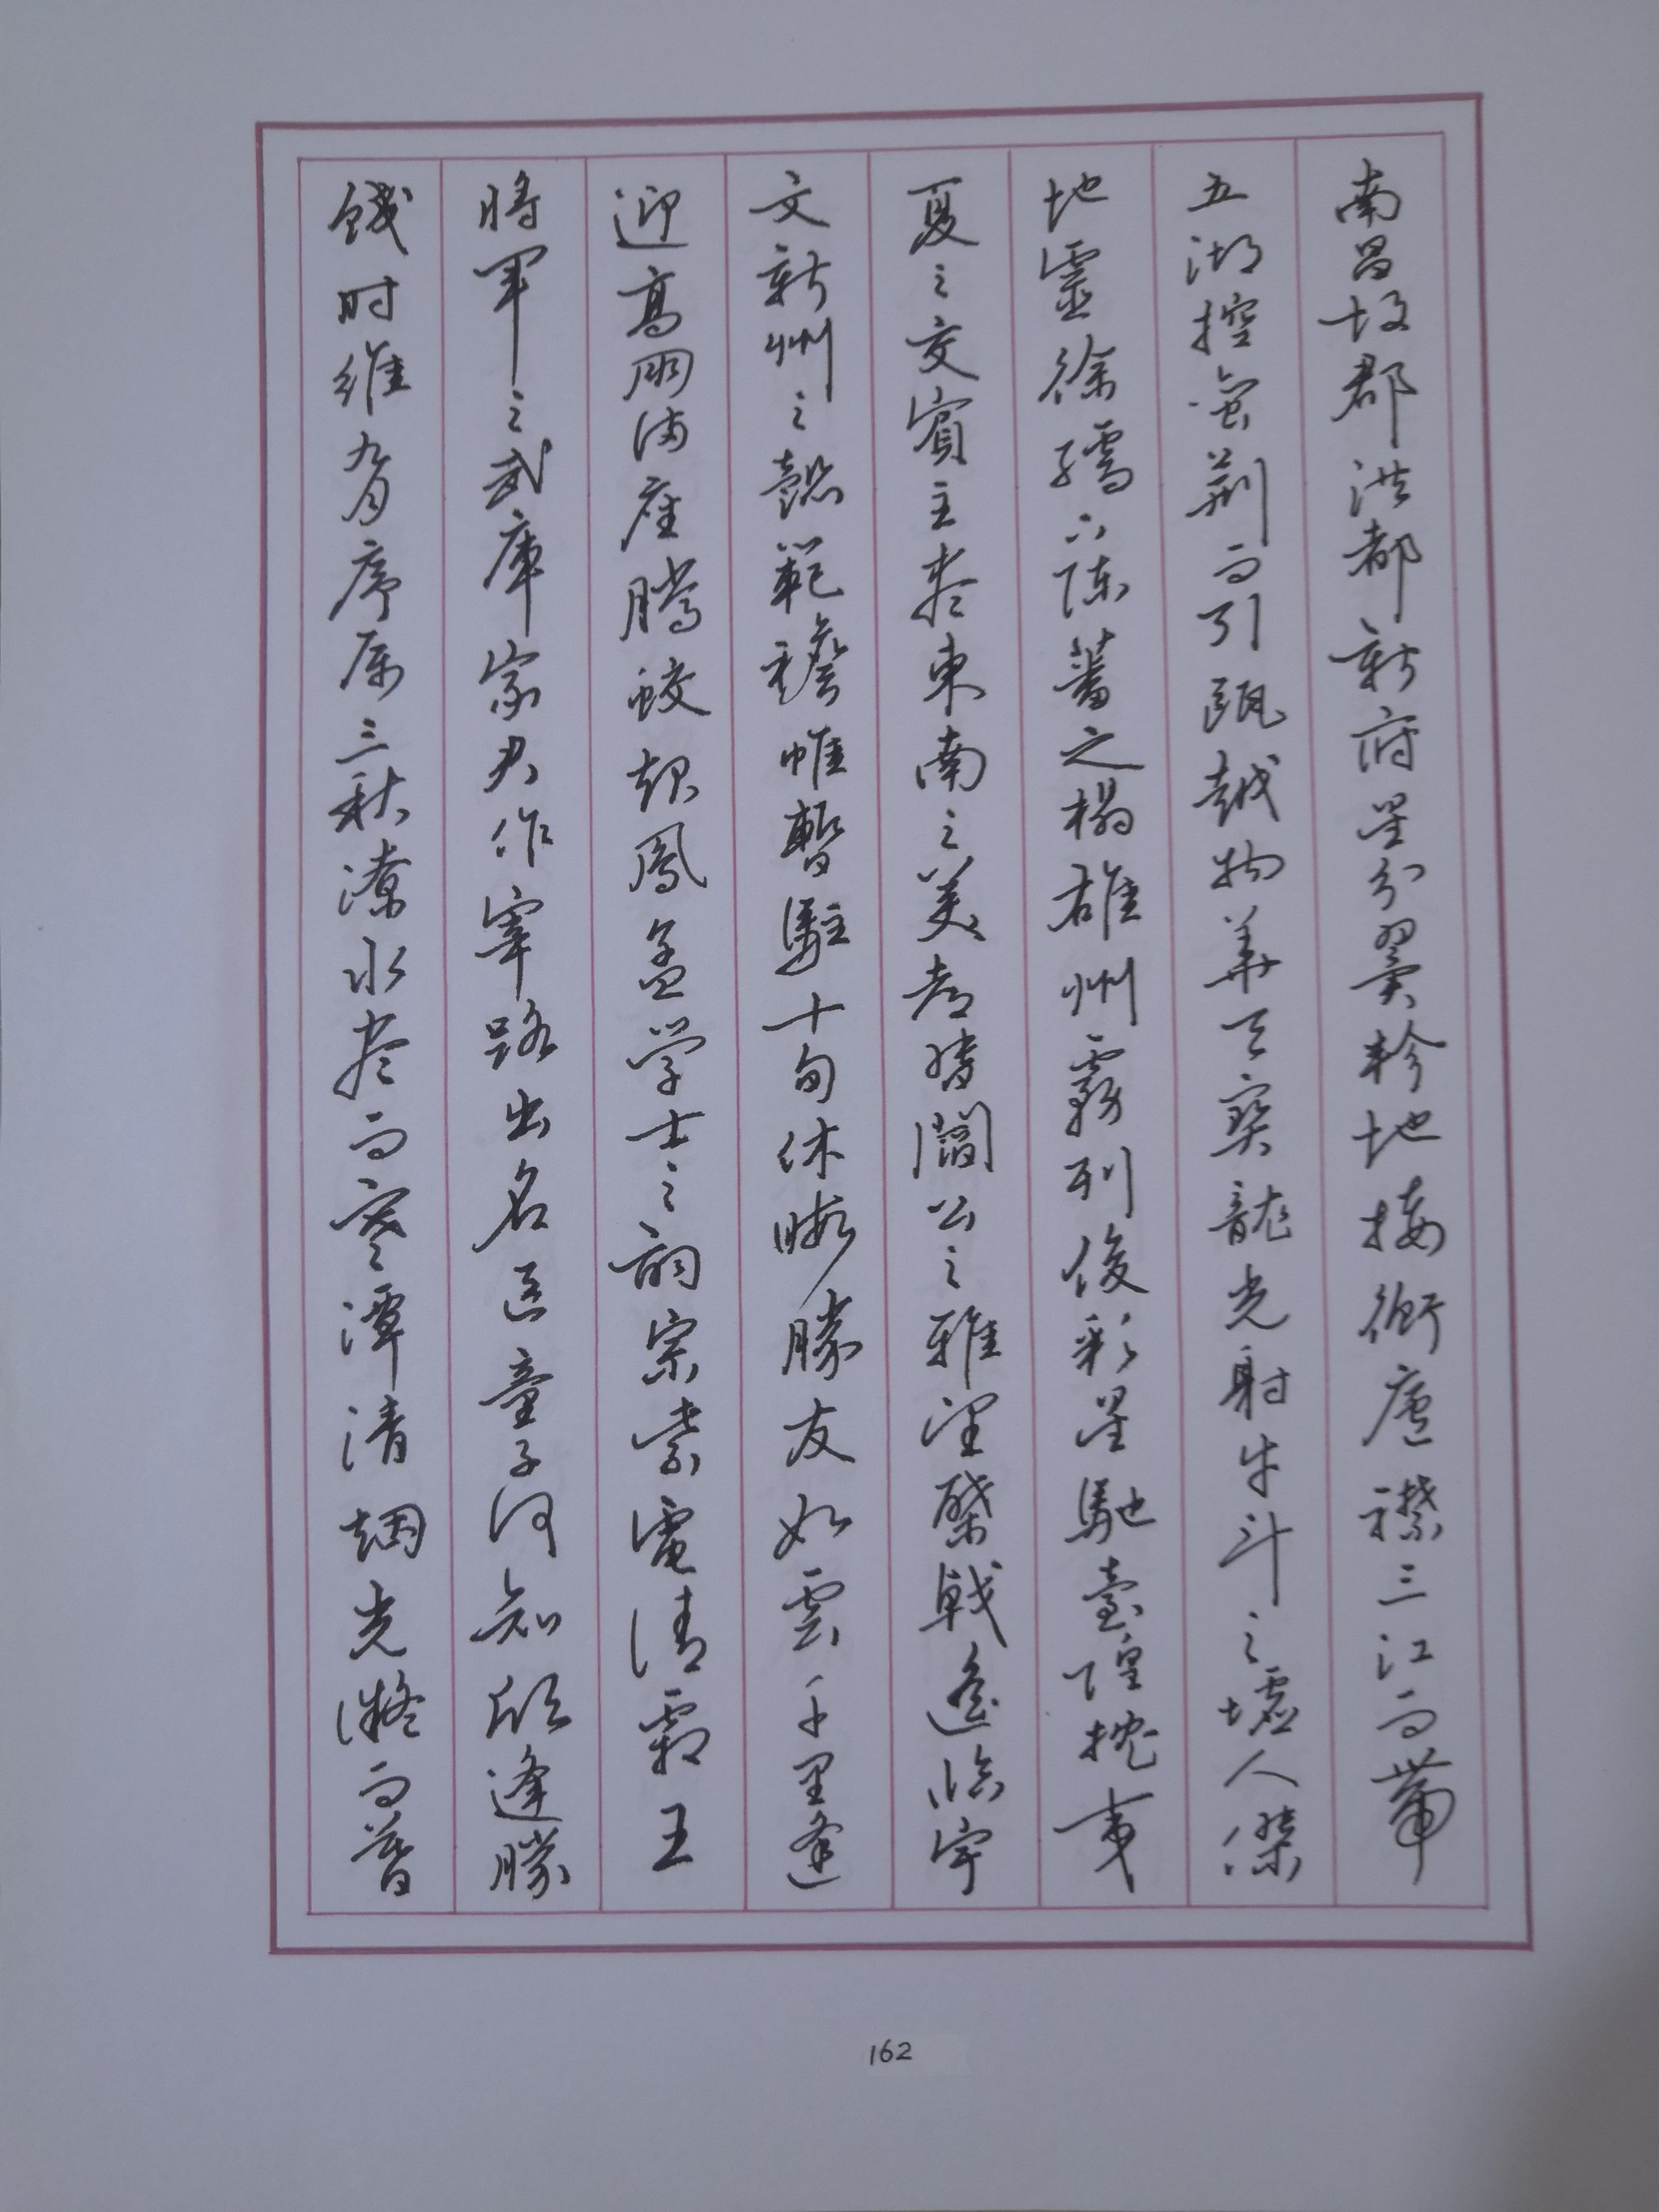 南昌故郡洪都新府星分翼軫地接衡廬襟三江而帶
五湖控蛮荆而引甌越物華天寶龍光射牛斗之墟人傑
地靈徐孺下陳蕃之榻雄州霧列俊彩星馳臺隍枕夷
夏之交賓主尽東南之美都督閻公之雅望棨戟遙臨宇
文新州之懿範襜帷暫駐十旬休暇勝友如雲千里逢
迎高朋满座騰蛟起鳳孟学士之詞宗紫電清霜王
將軍之武庫家君作宰路出名区童子何知躬逢勝
餞时維九月序属三秋潦水尽而寒潭清烟光凝而暮
162